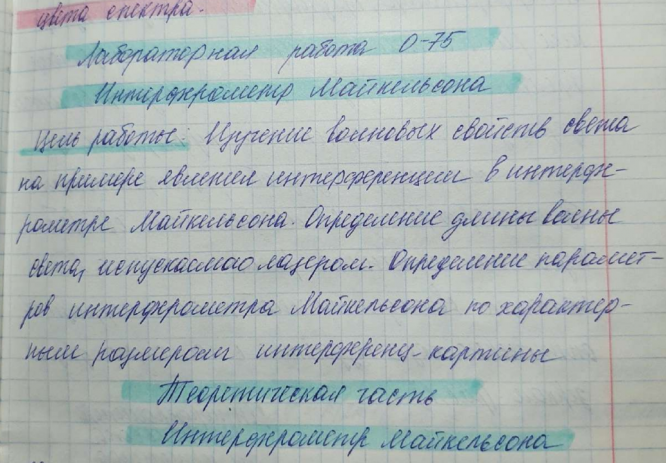 цвета спектра.
Лабораторная работа О-75
Интерферометр Майкельсона
Цель работы: Изучение волновых свойств света
на примере явления интерференции в интерфе-
рометре Майкельсона. Определение длины волны
света, испускаемого лазером. Определение парамет-
ров интерферометра Майкельсона по характер-
ным размерам интерференц. картины
Теоретическая часть
Интерферометр Майкельсона